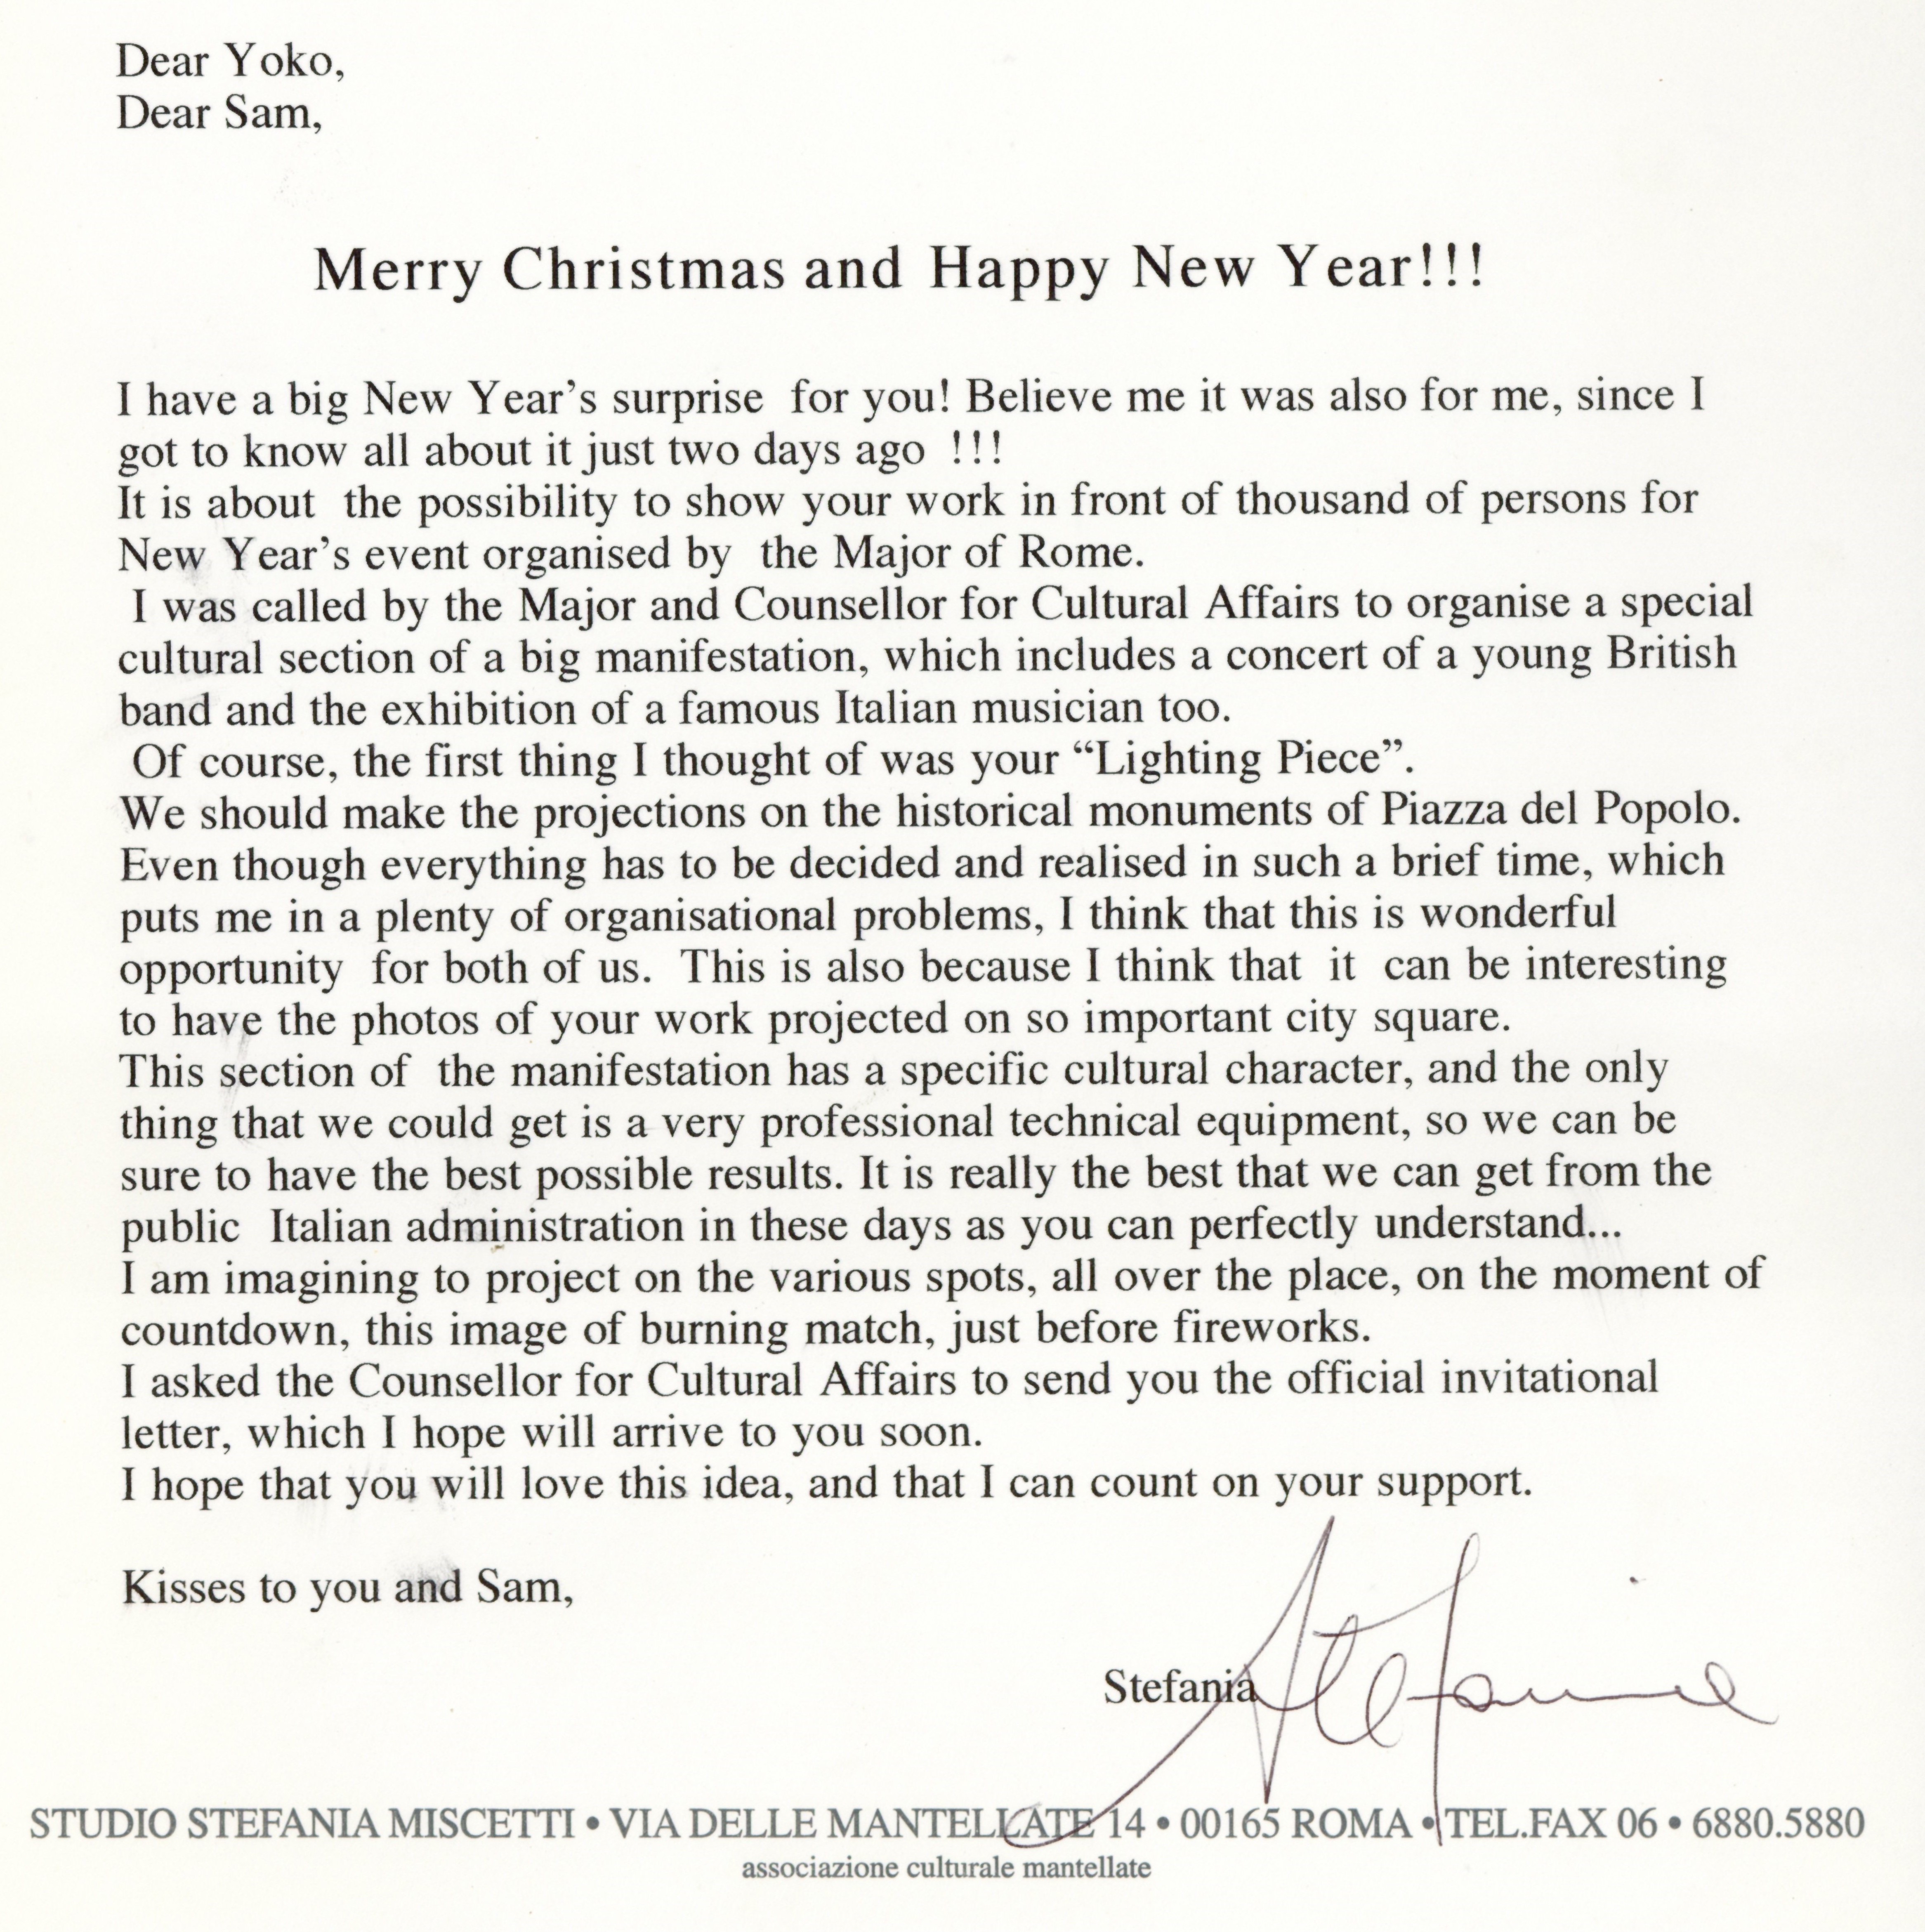 Dear Yoko,
Dear Sam,
Merry Christmas and Happy New Year!!!
I have a big New Year’s surprise for you! Believe me it was also for me, since I
got to know all about it just two days ago !!!
It is about the possibility to show your work in front of thousand of persons for
New Year’s event organised by the Major of Rome.
I was called by the Major and Counsellor for Cultural Affairs to organise a special
cultural section of a big manifestation, which includes a concert of a young British
band and the exhibition of a famous Italian musician too.
Of course, the first thing I thought of was your “Lighting Piece”.
We should make the projections on the historical monuments of Piazza del Popolo.
Even though everything has to be decided and realised in such a brief time, which
puts me in a plenty of organisational problems, I think that this is wonderful
opportunity for both of us. This is also because I think that it can be interesting
to have the photos of your work projected on so important city square.
This section of the manifestation has a specific cultural character, and the only
thing that we could get is a very professional technical equipment, so we can be
sure to have the best possible results. It is really the best that we can get from the
public Italian administration in these days as you can perfectly understand...
I am imagining to project on the various spots, all over the place, on the moment of
countdown, this image of burning match, just before fireworks.
I asked the Counsellor for Cultural Affairs to send you the official invitational
letter, which I hope will arrive to you soon.
I hope that you will love this idea, and that I can count on your support.
Kisses to you and Sam,
Stefania Stefania
STUDIO STEFANIA MISCETTI • VIA DELLE MANTELLATE 14 • 00165 ROMA • TEL.FAX 06 • 6880.5880
associazione culturale mantellate